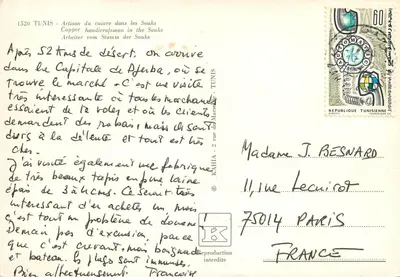 1520 TUNIS - Artisan du cuivre dans les Souks
Copper handicraftsman in the Souks
Arbeiter vom Stamm der Souks
Après 52 Kms de désert. on arrive
dans la Capitale de Djerba, où se
trouve le marché. C'est une visite
très intéressante où tous les marchands
essaient de la voler et où les clients
demandent des rabais, mais ils sont
durs à la détente et tout est très
cher.
J'ai visité également une fabrique
de très beaux tapis en pure laine
épais de 3 à 4 cms. Ce serait très
intéressant d'en acheter un mais
c'est tout un problème de douane!
Demain pas d'excursion parce
que c'est suivant, mais baignade
et bateau. les plages sont immenses.
Bien affectueusement Françoise
KAHIA - 2 rue de
Reproduction
interdite
60
REPUBLIQUE TUNISIENNE
Madame J. BESNARD
11, rue Lecuirot
75014 PARIS
FRANCE